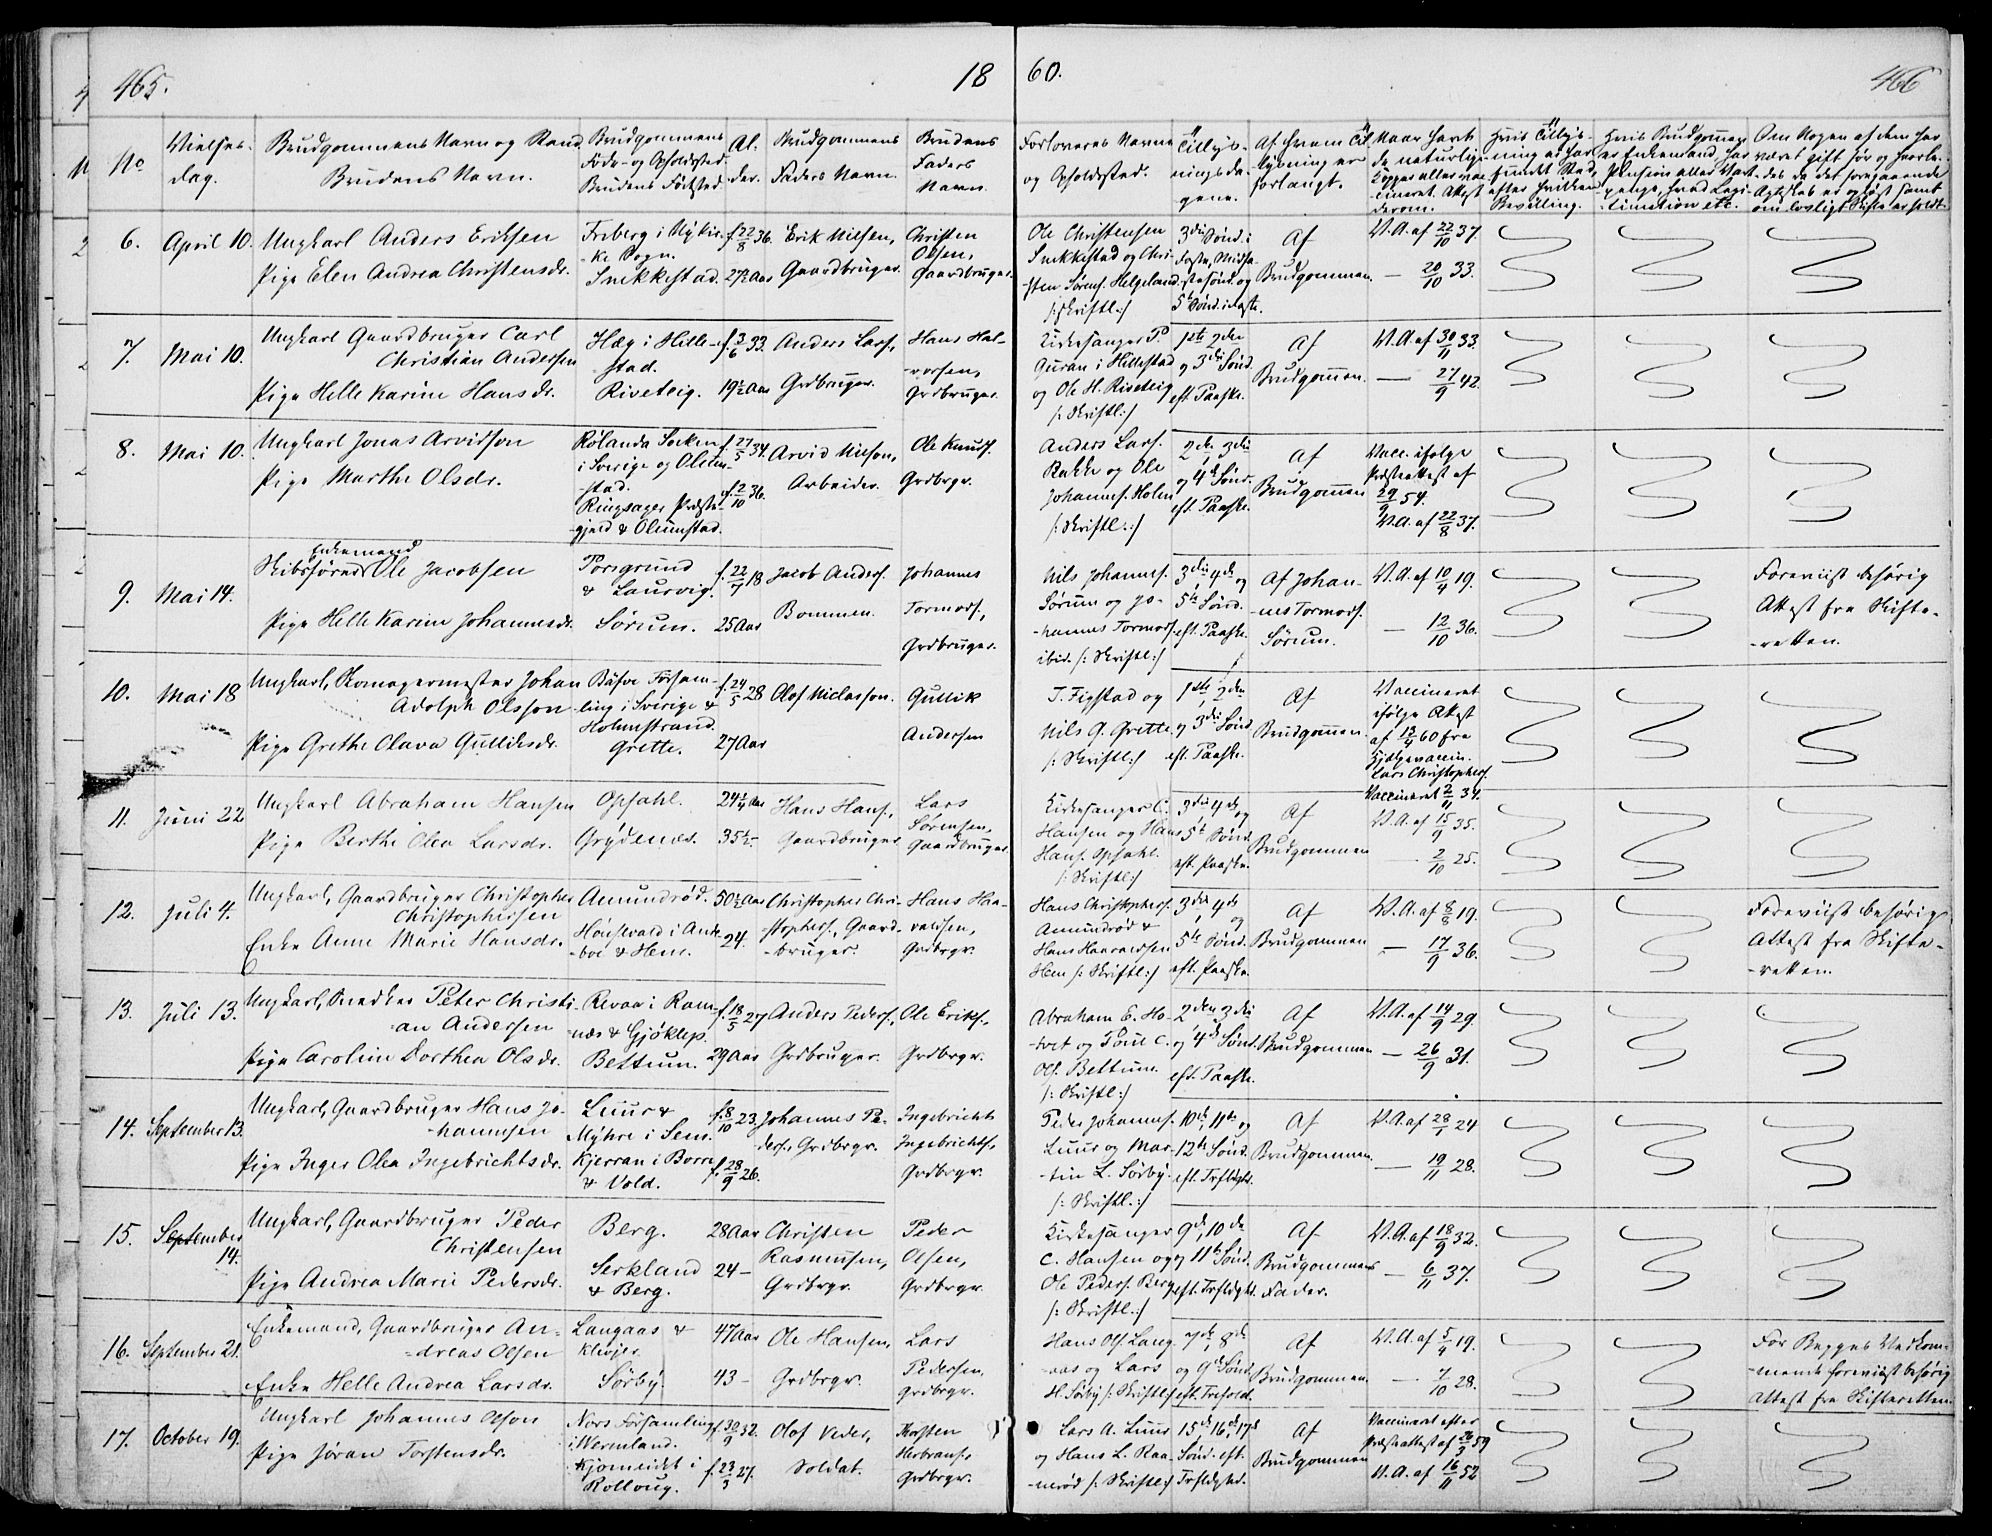 465.
18
60.
466
No
Vielses-
dag.
Brudgommens Navn og Stand
Brudens Navn.
Brudgommens
Føde- og Opholdssted.
Brudens Fødested.
Al-
der.
Brudgommens
Faders Navn.
Brudens
Faders
Navn.
Forlovernes Navne
og Opholdssted.
Tillys-
ningsda-
gene.
Af hvem Til-
lysning er
forlangt.
6.
April 10.
Ungkarl Anders Eriksen
Pige Elen Andrea Christensdr.
Friberg i Nykir-
-ke Sogn.
Snekkestad.
f. 22/8 36.
27½ Aar
Erik Nilsen,
Gaardbruger.
Christen
Olsen,
Gaardbruger.
Ole Christensen
Snekkestad og Chri-
-sten Sørens. Helgeland.
/:Skriftl:/
3die Sønd. i
Faste, Midfa-
-stesønd. og
5te Sønd. i Faste.
Af
Brudgommen.
V.A. af 22/10 37.
— 20/10 33.
7.
Mai 10.
Ungkarl Gaardbruger Carl
Christian Andersen
Pige Helle Karine Hansdr.
Hæg i Hille-
-stad.
Riveteig.
f. 3/6 33.
19½ Aar
Anders Lars.,
Grdbruger.
Hans Hal-
-vorsen,
Grdbruger.
Kirkesanger P.
Guran i Hillestad
og Ole H. Riveteig
/:Skriftl:/
1ste, 2den
og 3die Sønd.
eft. Paaske.
Af
Brudgommen.
V.A. af 30/11 33.
— 27/9 42.
8.
Mai 10.
Ungkarl Jonas Arvidson
Pige Marthe Olsdr.
Rølanda Socken
i Sverige og Olum-
-stad.
Ringsager Præste-
-gjeld & Olumstad.
f. 27/5 34.
f. 2/10 36.
Arvid Nilson,
Arbeider.
Ole Knuds.
Grdbrgr.
Anders Lars.
Bakke og Ole
Johannes. Holm
/:Skriftl.:/
2den, 3die
og 4de Sønd.
eft. Paaske.
Af
Brudgommen
Vacc. ifølge
Præsteattest af
29/9 54.
V.A. af 22/8 37.
9.
Mai 14.
Enkemand
Skibsfører Ole Jacobsen
Pige Helle Karine Johannesdr.
Porsgrund
& Laurvig.
Sørum.
f. 22/7 18
25 Aar
Jacob Anders.
Bommen.
Johannes
Tormods.,
Grdbruger.
Nils Johannes.
Sørum og Jo-
-hannes Tormods.
ibid. /:Skriftl:/
3die, 4de og
5te Sønd.
eft. Paaske.
Af Johan-
nes Tormods.
Sørum.
V.A. af 10/4 19.
— 12/10 36.
Foreviist behørig
Attest fra Skifte-
-retten.
10.
Mai 18
Ungkarl, Skomagermester Johan
Adolph Olsson
Pige Grethe Olava Gulliksdr.
Båsve Försam-
-ling i Sverige &
Holmestrand.
Grette.
f. 24/5 28
27 Aar
Olof Niclasson.
Gullik
Andersen
T. Figstad og
Nils G. Grette.
/:Skriftl:/
1ste, 2den
og 3die Sønd.
eft. Paaske.
Af
Brudgommen.
Vaccineret
ifølge Attest
af 13/4 60 fra
Hjælpevaccin.
Lars Christophers.
Vaccineret 2/11 34.
11.
Juni 22
Ungkarl Abraham Hansen
Pige Berthe Olea Larsdr.
Opsahl.
Grydenæs.
24¼ Aar
35½ -
Hans Hans.,
Gaardbruger
Lars
Sørensen,
Gaardbruger.
Kirkesanger C.
Hansen og Hans
Hans. Opsahl.
/:Skriftl:/
3die, 4de og
5te Sønd.
eft. Paaske.
Af
Brudgommen
V.A. af 15/9 35.
- 2/10 25.
12.
Juli 4.
Ungkarl, Gaardbruger Christopher
Christophersen
Enke Anne Marie Hansdr.
Amundrød.
& Hem.
50½ Aar
24.
Christopher Chri-
-stophers., Gaard-
-bruger.
Hans Haa-
-valdsen,
Grdbrgr.
Hans Christophers.
Amundrød &
Hem /:Skriftl:/
3die, 4de
og
5te Sønd.
eft. Paaske.
Af
Brudgommen
V.A. af 8/8 19.
— 17/9 36.
Foreviist behørig
Attest fra Skifte-
-retten.
13.
Juli 13.
Ungkarl, Snedker Peter Christi-
-an Andersen
Pige Caroline Dorthea Olsdr.
Revaa i Ram-
-næs & Gjøklep.
Bettum.
f. 18/5 27
29 Aar
Anders Peders.,
Grdbruger.
Ole Eriks.,
Grdbrgr.
Abraham E. Ho-
-tvet og Poul C.
Ols. Bettum.
/:Skriftl:/
2den, 3die
og 4de Sønd.
eft. Paaske.
Af
Brudgommen
V.A. af 14/9 29.
— 26/9 31.
14.
September 13.
Ungkarl, Gaardbruger Hans Jo-
-hannesen
Pige Inger Olea Ingebrichtsdr.
Luur &
Myhre i Sem.
Kjerran i Borre
& Vold.
f. 8/10 23.
f. 28/9 26.
Johannes Pe-
ders., Grdbrgr.
Ingebricht
Ingebrichts.,
Grdbrgr.
Peder Johannes.
Luur og Mar-
-tin L. Sørby.
/:Skriftl.:/
10de, 11te og
12te Sønd.
eft. Trefldght.
Af
Brudgommen.
V.A. af 28/1 24
— 19/11 28.
15.
September
14.
Ungkarl, Gaardbruger Peder
Christensen
Pige Andrea Marie Pedersdr.
Berg.
Serkland
& Berg.
28 Aar
24 —
Christen
Rasmussen,
Grdbrgr.
Peder
Olsen,
Grdbrgr.
Kirkesanger
C. Hansen og
Ole Peders. Berg
/:Skriftl:/
9de, 10de
og 11te Sønd.
eft. Trefldght.
Af
Brudgommens
Fader.
V.A. af 18/9 32.
— 6/11 37.
16.
September 21.
Enkemand, Gaardbruger An-
-dreas Olsen
Enke Helle Andrea Larsdr.
Langaas &
Klinjer.
Sørby.
47 Aar
43 —
Ole Hansen,
Grdbrgr.
Lars
Pedersen,
Grdbrgr.
Hans Ols. Lang-
-aas og Lars
H. Sørby /:Skriftl:/
7de, 8de
og 9de Sønd.
eft. Trefold.
Af
Brudgommen.
V.A. af 5/4 19.
— 7/10 28.
For Begges Vedkom-
-mende foreviist behørig
Attest fra Skifteretten
17.
October 19.
Ungkarl Johannes Olson
Pige Jøran Torstensdr.
Nors Församling
i Wermland.
Rolloug.
f. 30/9 32.
f. 23/3 27.
Olof Veder,
Soldat.
Torsten
Herbrans.,
Grdbrgr.
Lars A. Luur
og Hans L. Raa-
-nerød /:Skriftl:/
15de, 16de, 17de
Sønd. eft.
Trefldghed.
Af
Brudgommen
Vaccineret efter
Præsteattest af 26/3 59
V.A. af 16/11 52